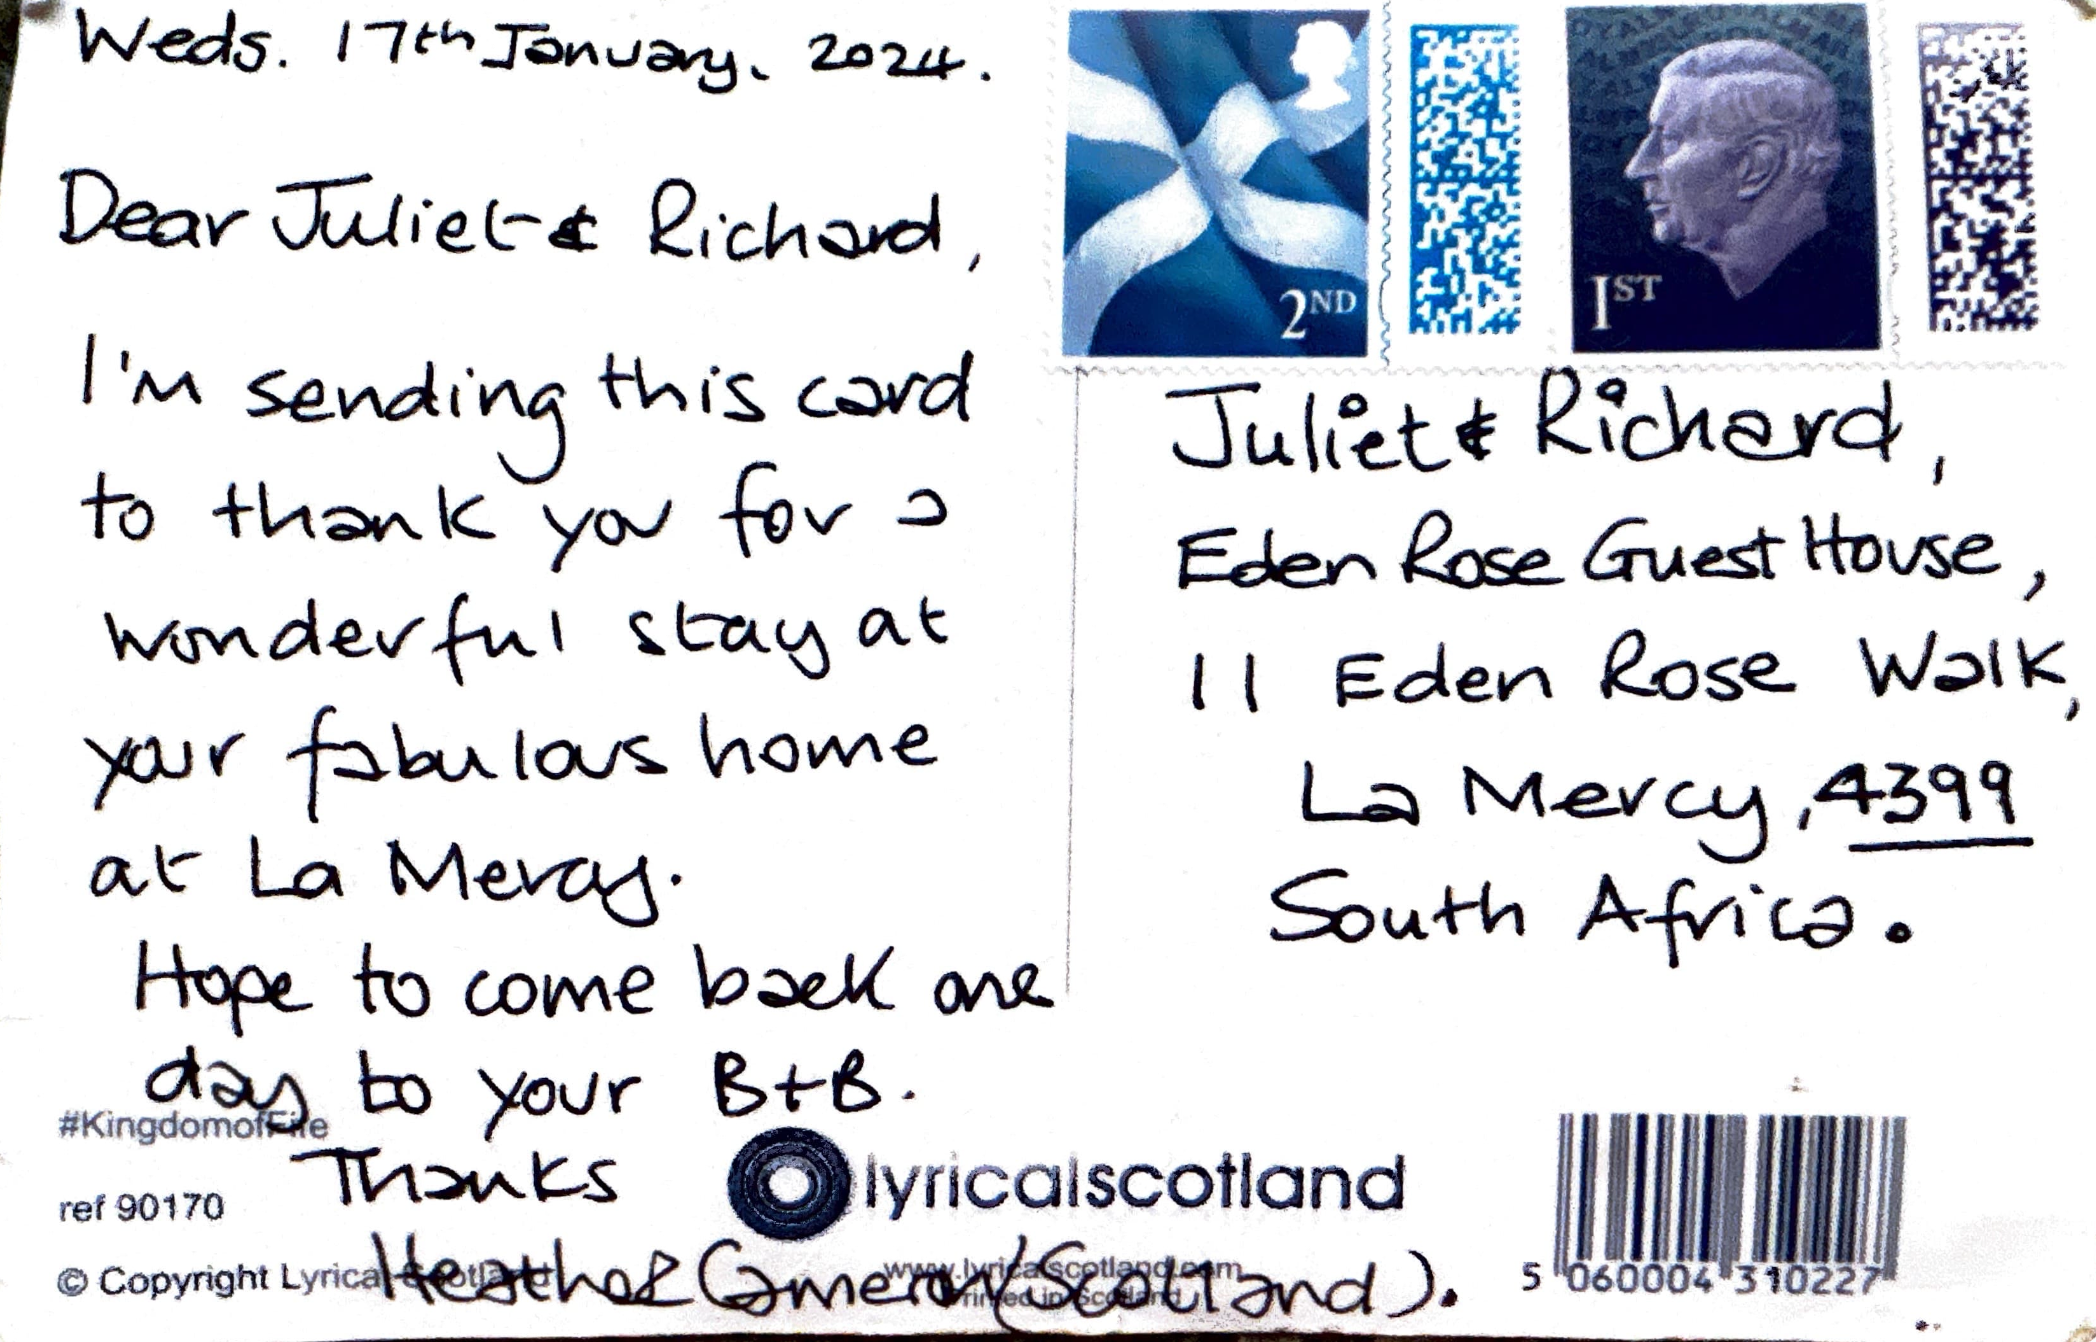 Weds. 17th January. 2024.
Dear Juliet & Richard,
I'm sending this card
to thank you for a
wonderful stay at
your fabulous home
at La Mercy.
Hope to come back one
day to your B+B.
Thanks
Heather Cameron (Scotland).
2ND
1ST
Juliet & Richard,
Eden Rose Guest House,
11 Eden Rose Walk,
La Mercy, 4399
South Africa.
#KingdomofFife
ref 90170
© Copyright Lyrical Scotland
lyricalscotland
www.lyricalscotland.com
Printed in Scotland
5 060004 310227